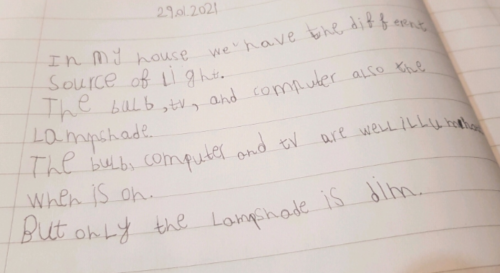 29.01.2021
In my house we have the different
source of light.
The bulb, tv, and computer also the
Lampshade
The bulb, computer and tv are well
when is on.
But only the Lampshade is dim.